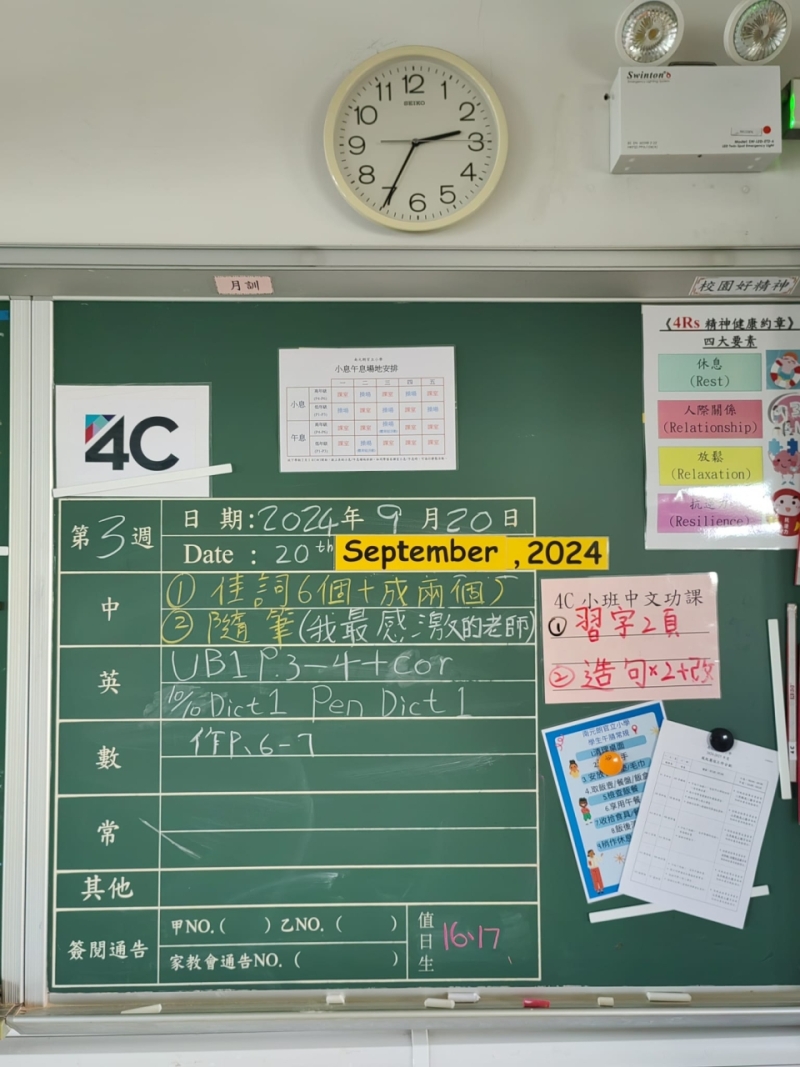 11 12 1
10 2
9 3
8 4
7 6 5
SEIKO
Swinton
月訓
校園好精神
小息午息場地安排
一 二 三 四 五
小息
午息
4C
《4Rs 精神健康約章》
四大要素
休息
(Rest)
人際關係
(Relationship)
放鬆
(Relaxation)
(Resilience)
第3週
日 期:2024年 9 月20日
Date : 20th September , 2024
中
① 佳詞6個+成兩個5
② 隨筆(我最感激的老師)
英
UB1 P.3-4+cor
Dict 1 Pen Dict 1
數
作P.6-7
常
其他
簽閱通告
甲NO.( ) 乙NO. ( )
家教會通告NO. ( )
值日生
16、17
4C小班中文功課
① 習字2頁
② 造句×2+改
南元朗官立小學
學生午膳常規
1.清理桌面
4.取飯壺/餐盤/飯盒
5.檢查飯餐
6.享用午餐